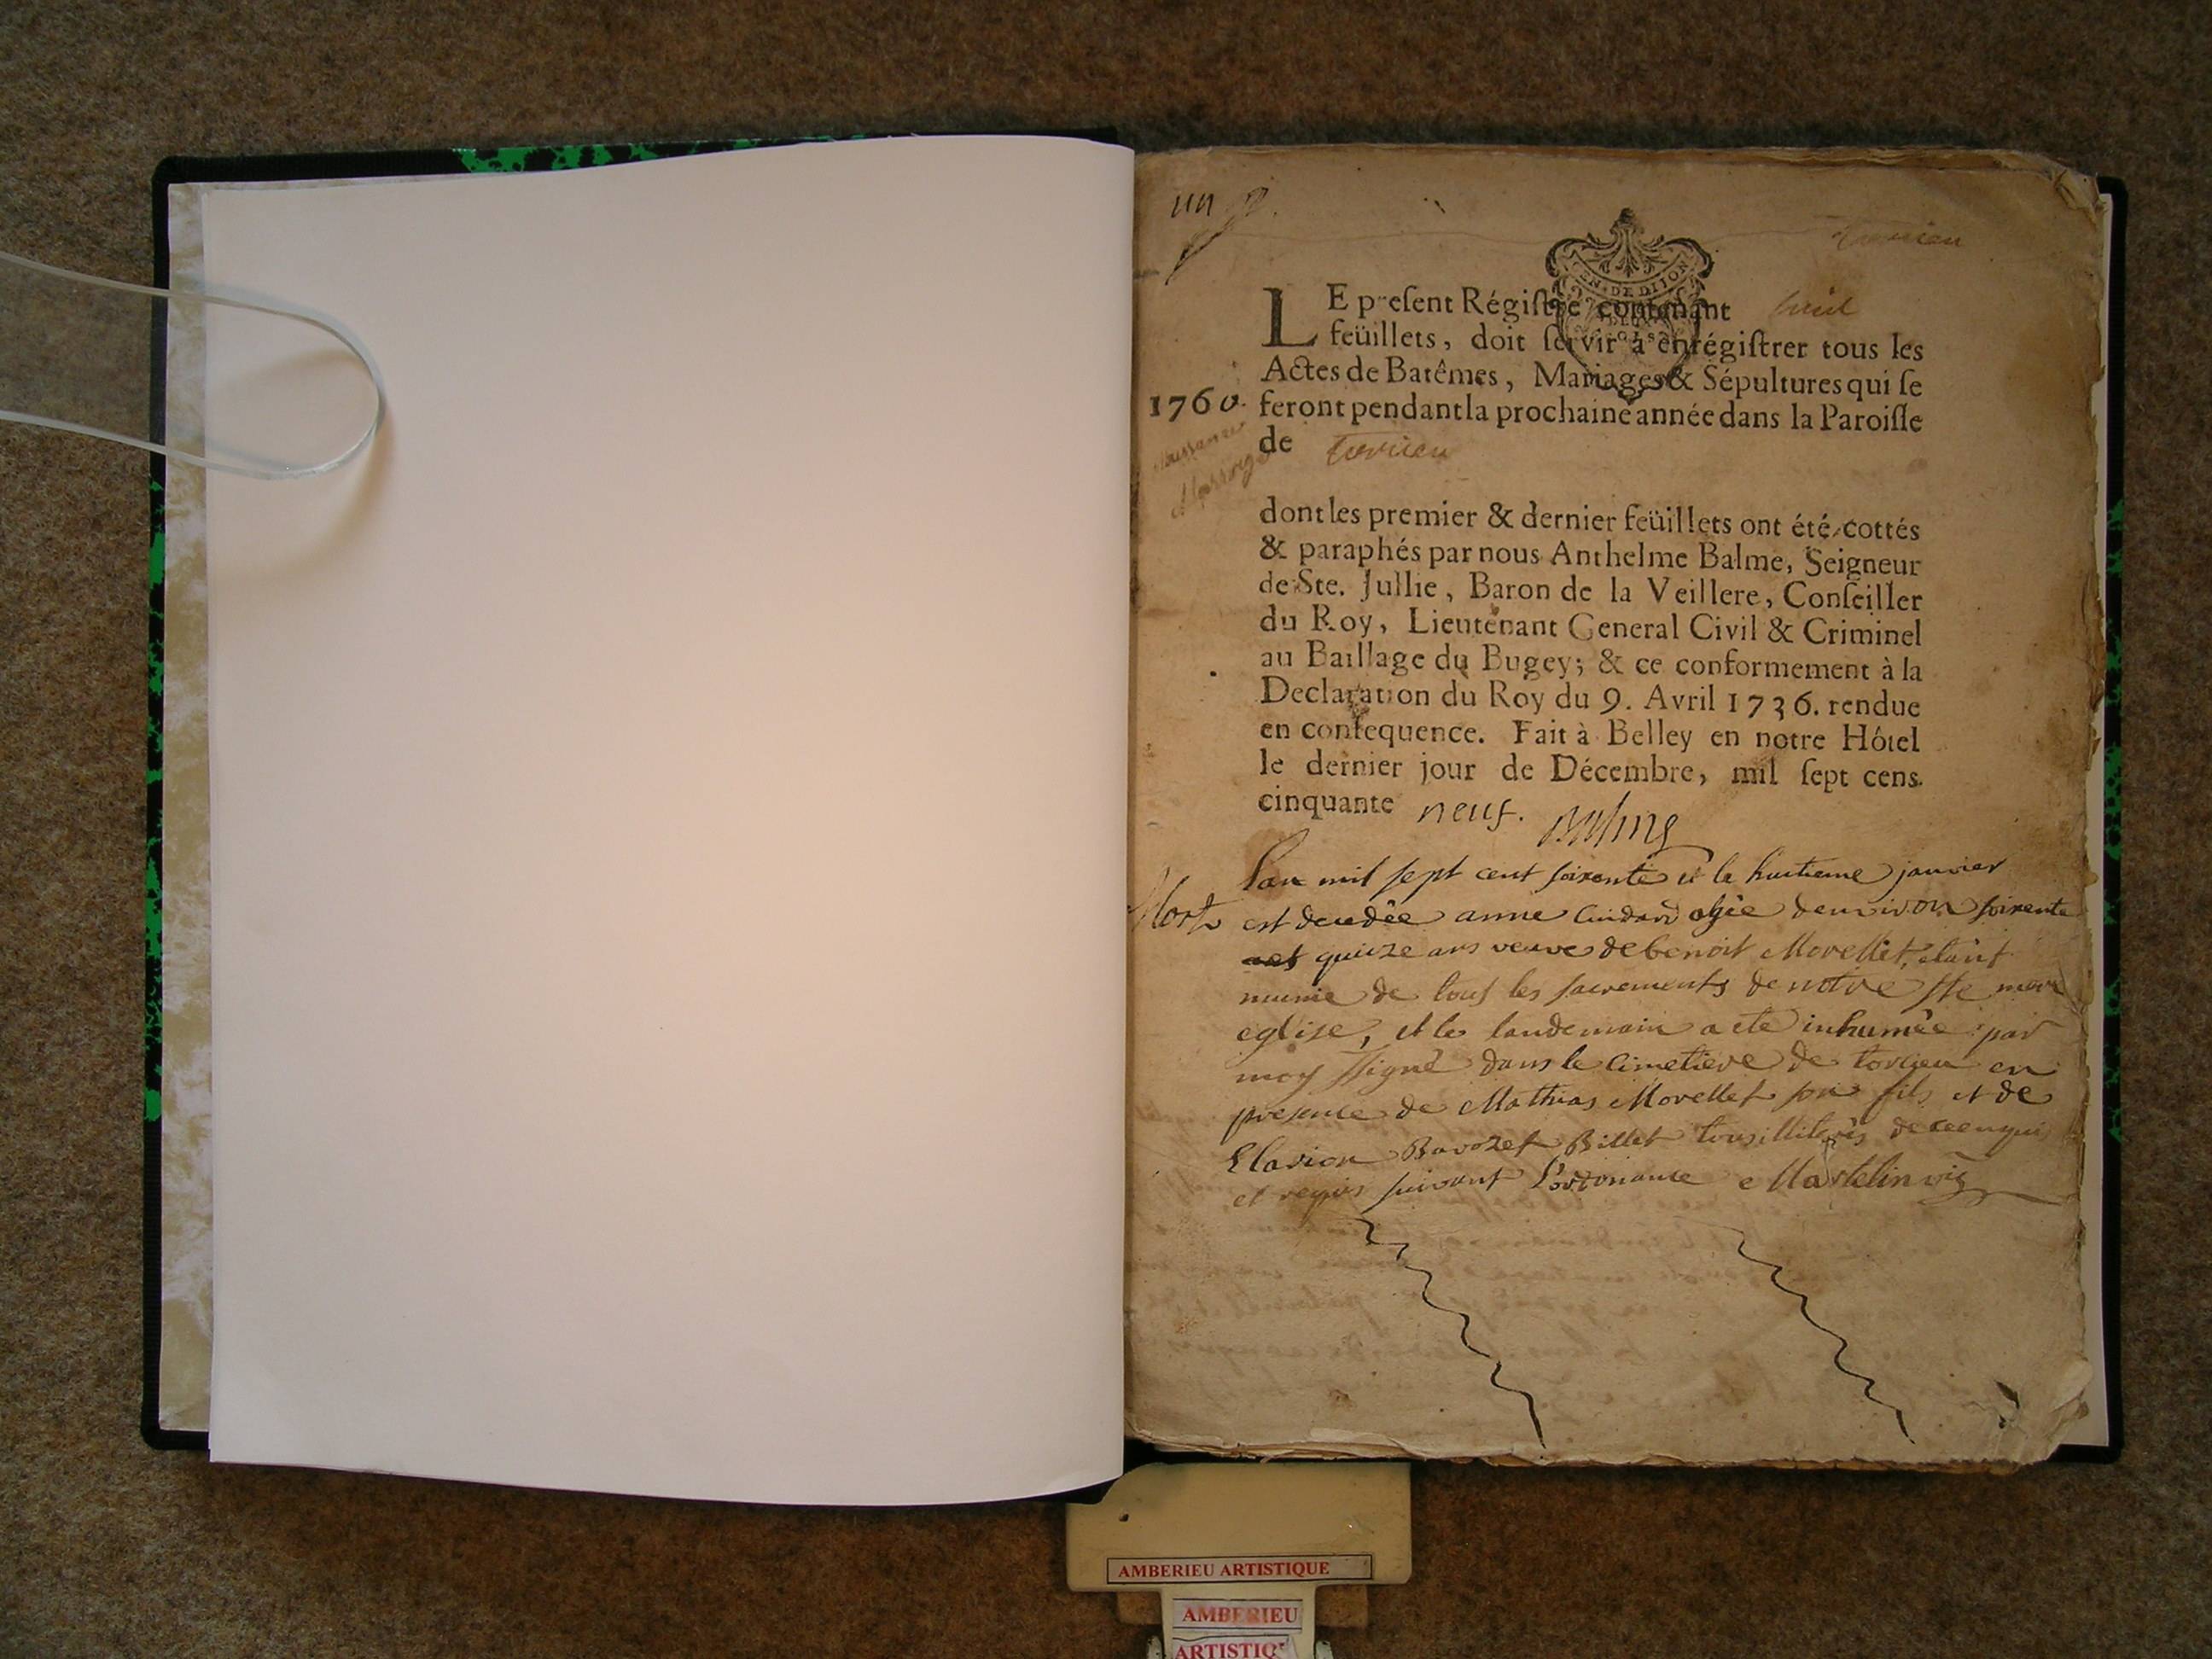 un
torcieu
GEN · DE DIJON
LE present Régistre contenant huit
feüillets, doit servir à enrégistrer tous les
Actes de Batêmes, Mariages & Sépultures qui se
1760. feront pendant la prochaine année dans la Paroisse
de torcieu
dont les premier & dernier feüillets ont été cottés
& paraphés par nous Anthelme Balme, Seigneur
de Ste. Jullie, Baron de la Veillere, Conseiller
du Roy, Lieutenant General Civil & Criminel
au Baillage du Bugey; & ce conformement à la
Declaration du Roy du 9. Avril 1736. rendue
en consequence. Fait à Belley en notre Hôtel
le dernier jour de Décembre, mil sept cens
cinquante neuf. Balme
l'an mil sept cent soixente et le huitieme janvier
Mort est decedée anne Guidard agée denviron soixente
et quinze ans veuve de benoit Morellet, etant
munie de tous les sacrements de notre ste mere
eglise, et le landemain a eté inhumée par
moy ssigné dans le cimetiere de torcieu en
presence de Mathias Morellet son fils et de
Clarion Bavozet Billet tous illiterés de ce enquis
et requis suivant l'ordonance Martelin vic
AMBERIEU ARTISTIQUE
AMBERIEU
ARTISTIQ